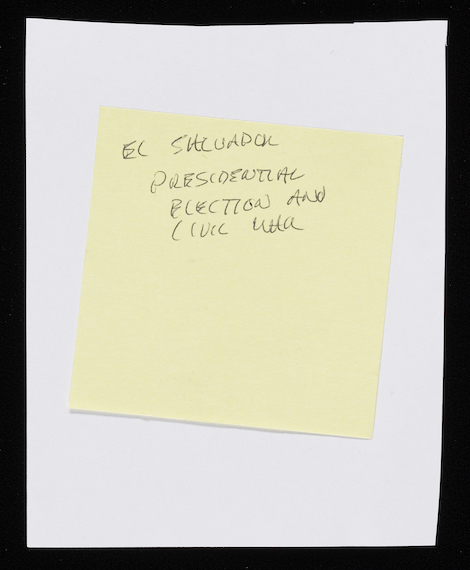 EL SALVADOR
PRESIDENTIAL
ELECTION AND
CIVIL WAR